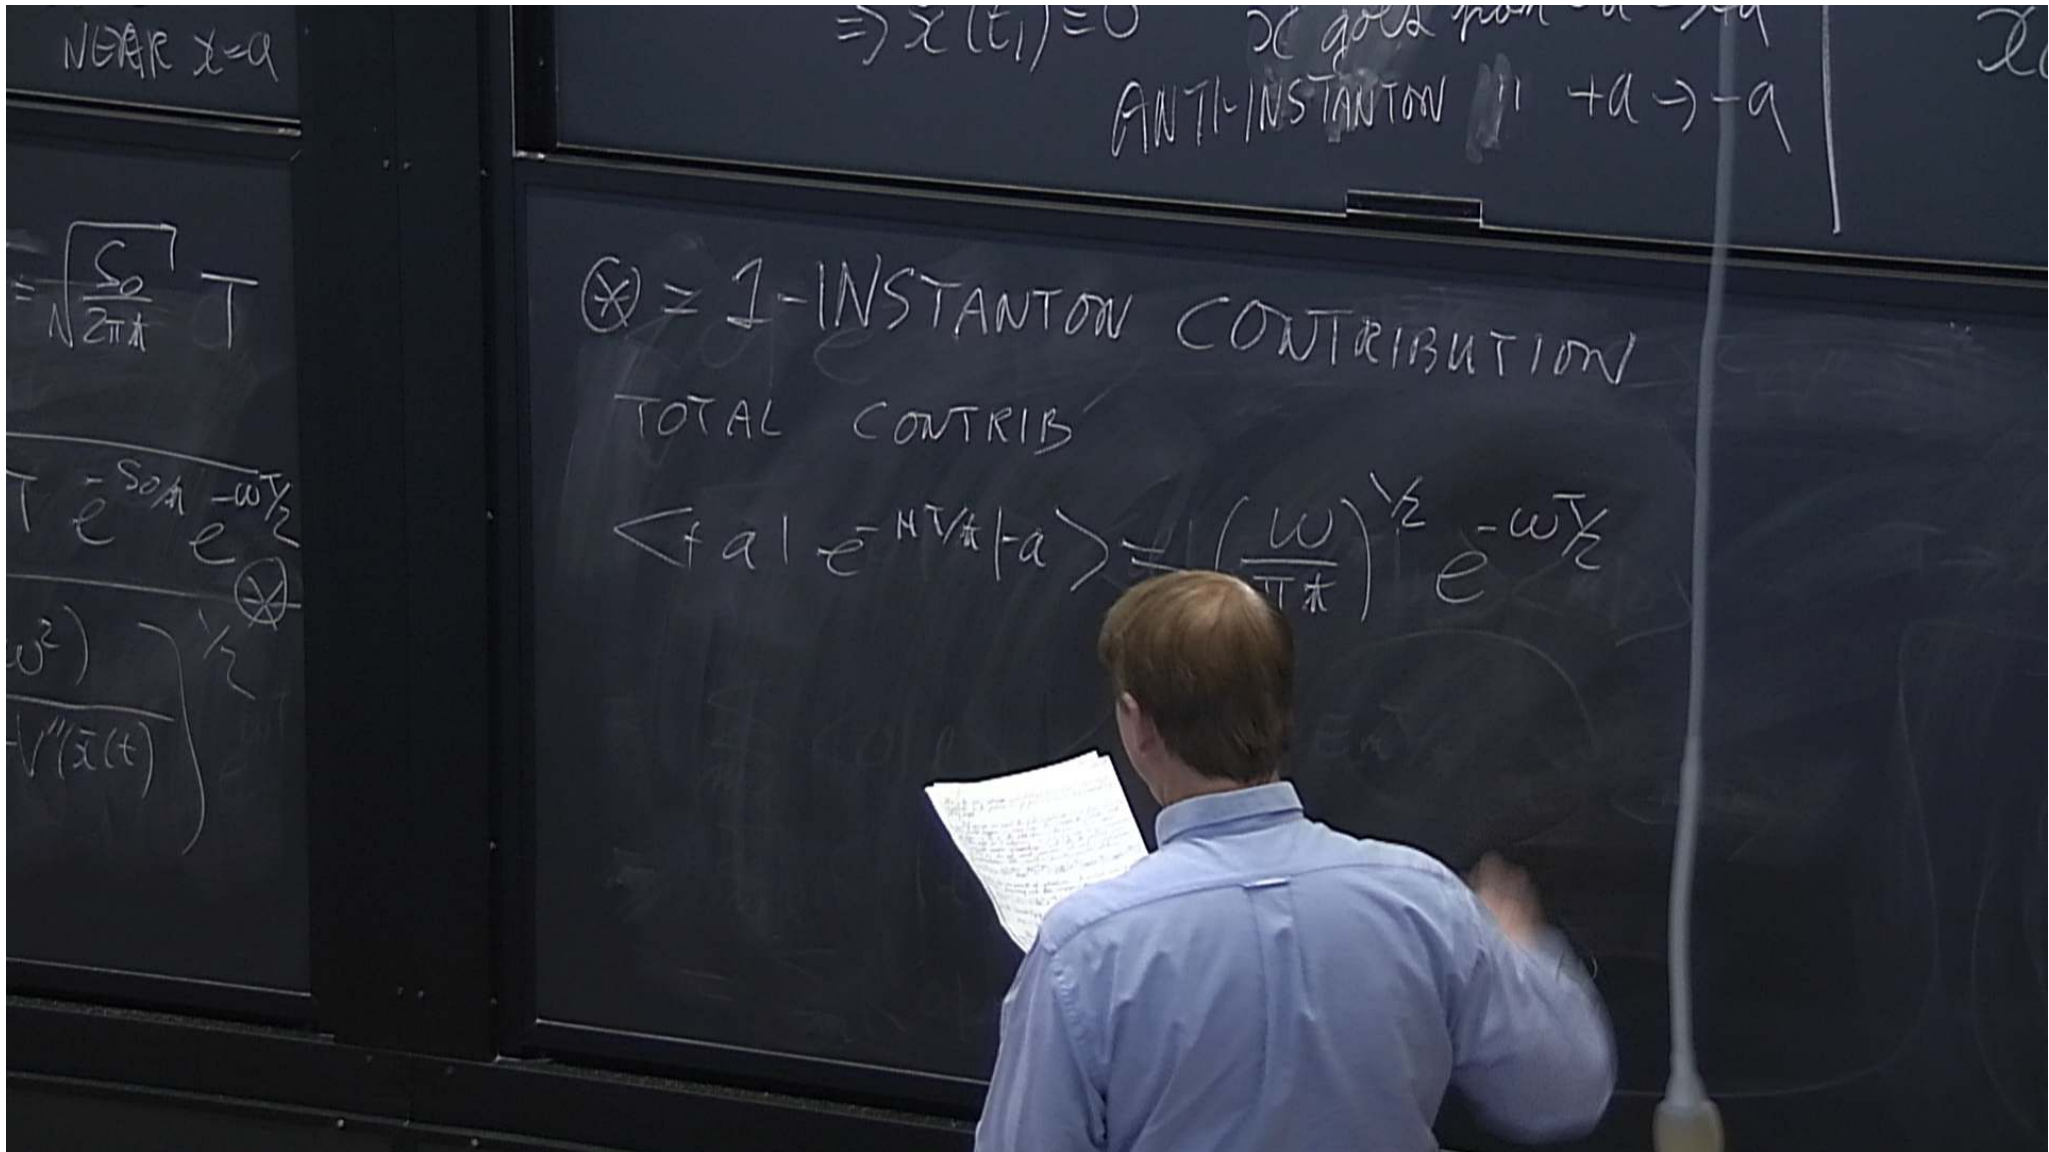 NEAR x=a
= √(S₀/2πħ) T
T e^{-S₀/ħ} e^{-ωT/2}
⊛
ω²)
V''(x̄(t)) ^{1/2}
⇒ x̄(t₁)=0 x goes from -a → +a
ANTI-INSTANTON " +a → -a
⊛ = 1-INSTANTON CONTRIBUTION
TOTAL CONTRIB
<+a| e^{-HT/ħ} |-a> = (ω/πħ)^{1/2} e^{-ωT/2}